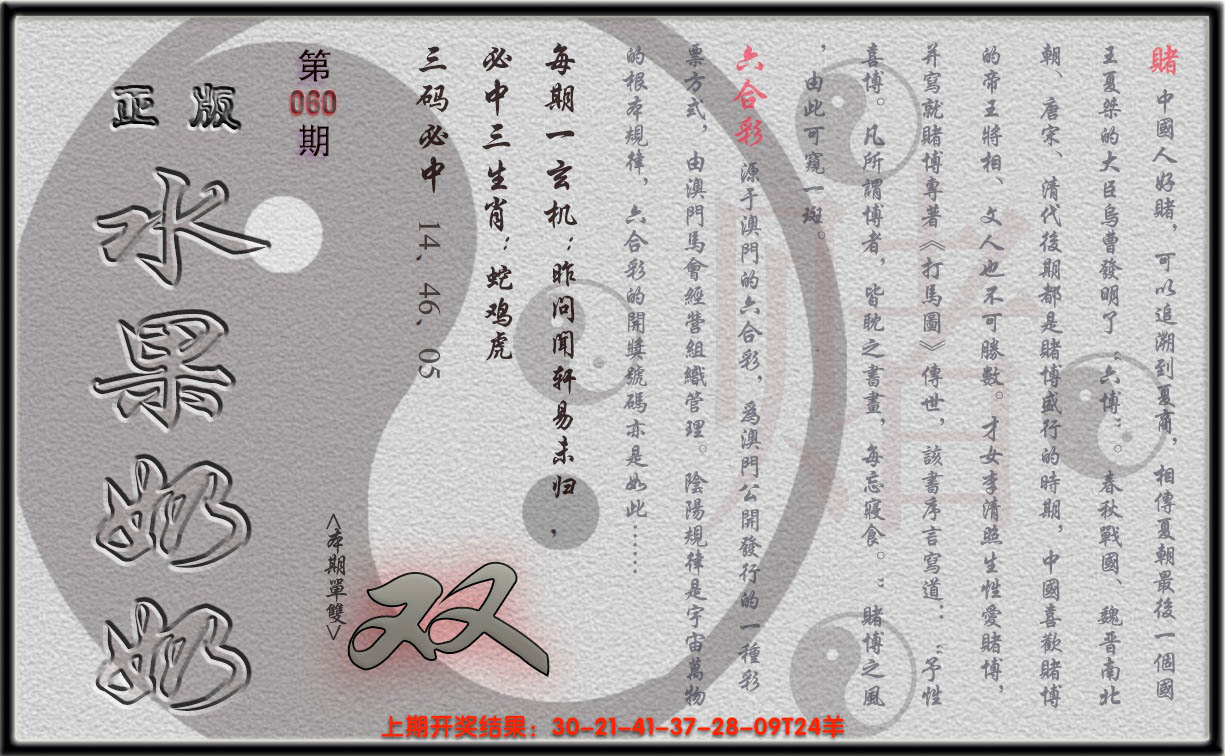 賭 中國人好賭，可以追溯到夏商，相傳夏朝最後一個國
王夏桀的大臣烏曹發明了“六博”。春秋戰國、魏晉南北
朝、唐宋、清代後期都是賭博盛行的時期，中國喜歡賭博
的帝王將相、文人也不可勝數。才女李清照生性愛賭博，
并寫就賭博專著《打馬圖》傳世，該書序言寫道：“予性
喜博。凡所謂博者，皆耽之書畫，每忘寢食。”賭博之風
，由此可窺一斑。
六合彩 源于澳門的六合彩，爲澳門公開發行的一種彩
票方式，由澳門馬會經營組織管理。陰陽規律是宇宙萬物
的根本規律，六合彩的開獎號碼亦是如此……
賭
每期一玄机：昨问闻轩易未归，
必中三生肖：蛇鸡虎
三码必中 14、46、05
<本期單雙>
双
第
060
期
正版
水果奶奶
上期开奖结果：30-21-41-37-28-09T24羊